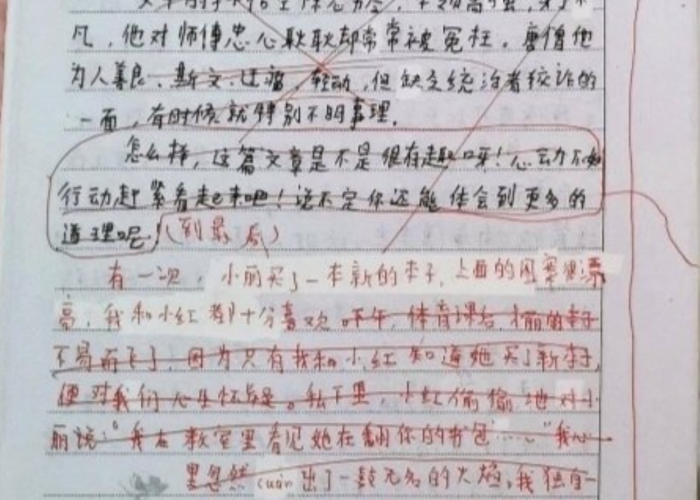 凡，他对师傅忠心耿耿却常常被冤枉。唐僧他
为人善良、斯文、迂腐，轻动，但缺乏统治者狡诈的
一面，有时候就特别不明事理。
怎么样，这篇文章是不是很有趣呀！心动不如
行动赶紧看起来吧！说不定你还能体会到更多的
道理呢！(到最后)
有一次，小丽买了一本新的本子，上面的图案很漂
亮，我和小红都十分喜欢。下午，体育课后，小丽的本子
不易而飞了，因为只有我和小红知道她买了新本子，
便对我们心生怀疑。私下里，小红偷偷地对小
丽说："我在教室里看见她在翻你的书包……"我心
里忽然cuàn出了一鼓无名的火焰，我独自一